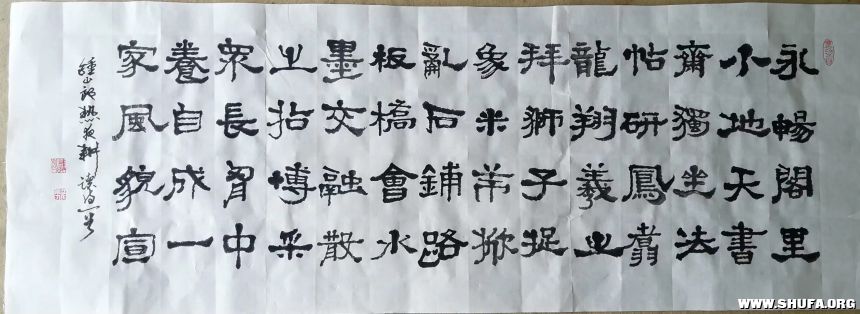 永暢閣里
小地天書
齋獨坐法
帖研鳳翥
龍翔羲之
拜獅子捉
象米芾掀
亂石鋪路
板橋會水
墨交融散
之拈博采
眾長胷中
養自成一
家風貌宣
WWW.SHUFA.ORG